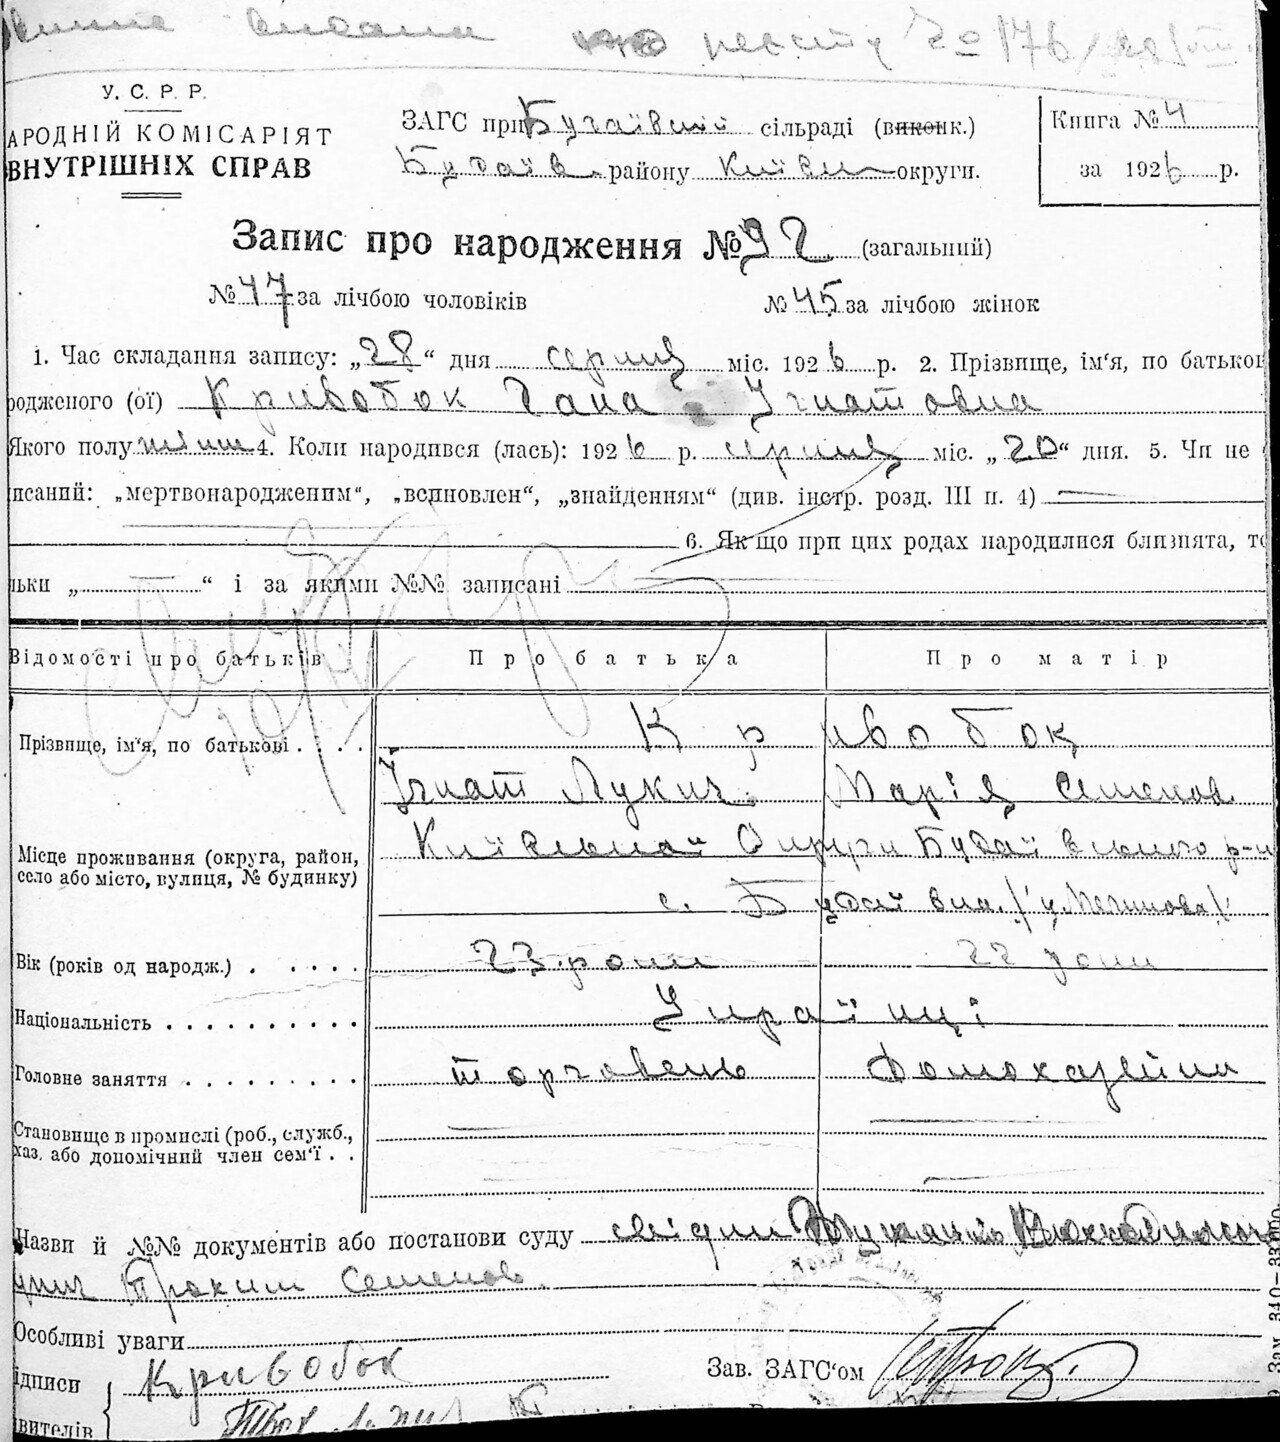 У. С. Р. Р.
АРОДНІЙ КОМІСАРІЯТ
ВНУТРІШНІХ СПРАВ
ЗАГС при Бугаївській сільраді (виконк.)
Будаїв району Київськ округи.
Книга № 4
за 1926 р.
Запис про народження № 92 (загальний)
№ 47 за лічбою чоловіків № 45 за лічбою жінок
1. Час складання запису: „28“ дня серпня міс. 1926 р. 2. Прізвище, ім'я, по батьков
родженого (ої) Кривобок Гана Ігнатовна
Якого полу жіноч 4. Коли народився (лась): 1926 р. серпня міс. „20“ дня. 5. Чи не
писаний: „мертвонародженим“, „всиновлен“, „знайденням“ (див. інстр. розд. III п. 4)
6. Якщо при цих родах народилися близнята, то
льки „ “ і за якими №№ записані
Відомості про батьків Про батька Про матір
Прізвище, ім'я, по батькові . . . . Кривобок
Ігнат Лукич Марія Семенов
Місце проживання (округа, район, село або місто, вулиця, № будинку) Київської Округи Будаївського р-н
с. Будаївка
Вік (років од народж.) . . . . . 23 роки 22 роки
Національність . . . . . . . . . . Українці
Головне заняття . . . . . . . . . торговець Домохазяйка
Становище в промислі (роб., служб.,
хаз. або допомічний член сем'ї . .
Назви й №№ документів або постанови суду свідки
Трохим Семенов
Особливі уваги
ідписи Кривобок Зав. ЗАГС'ом
вителів
Зам. 340—33.000